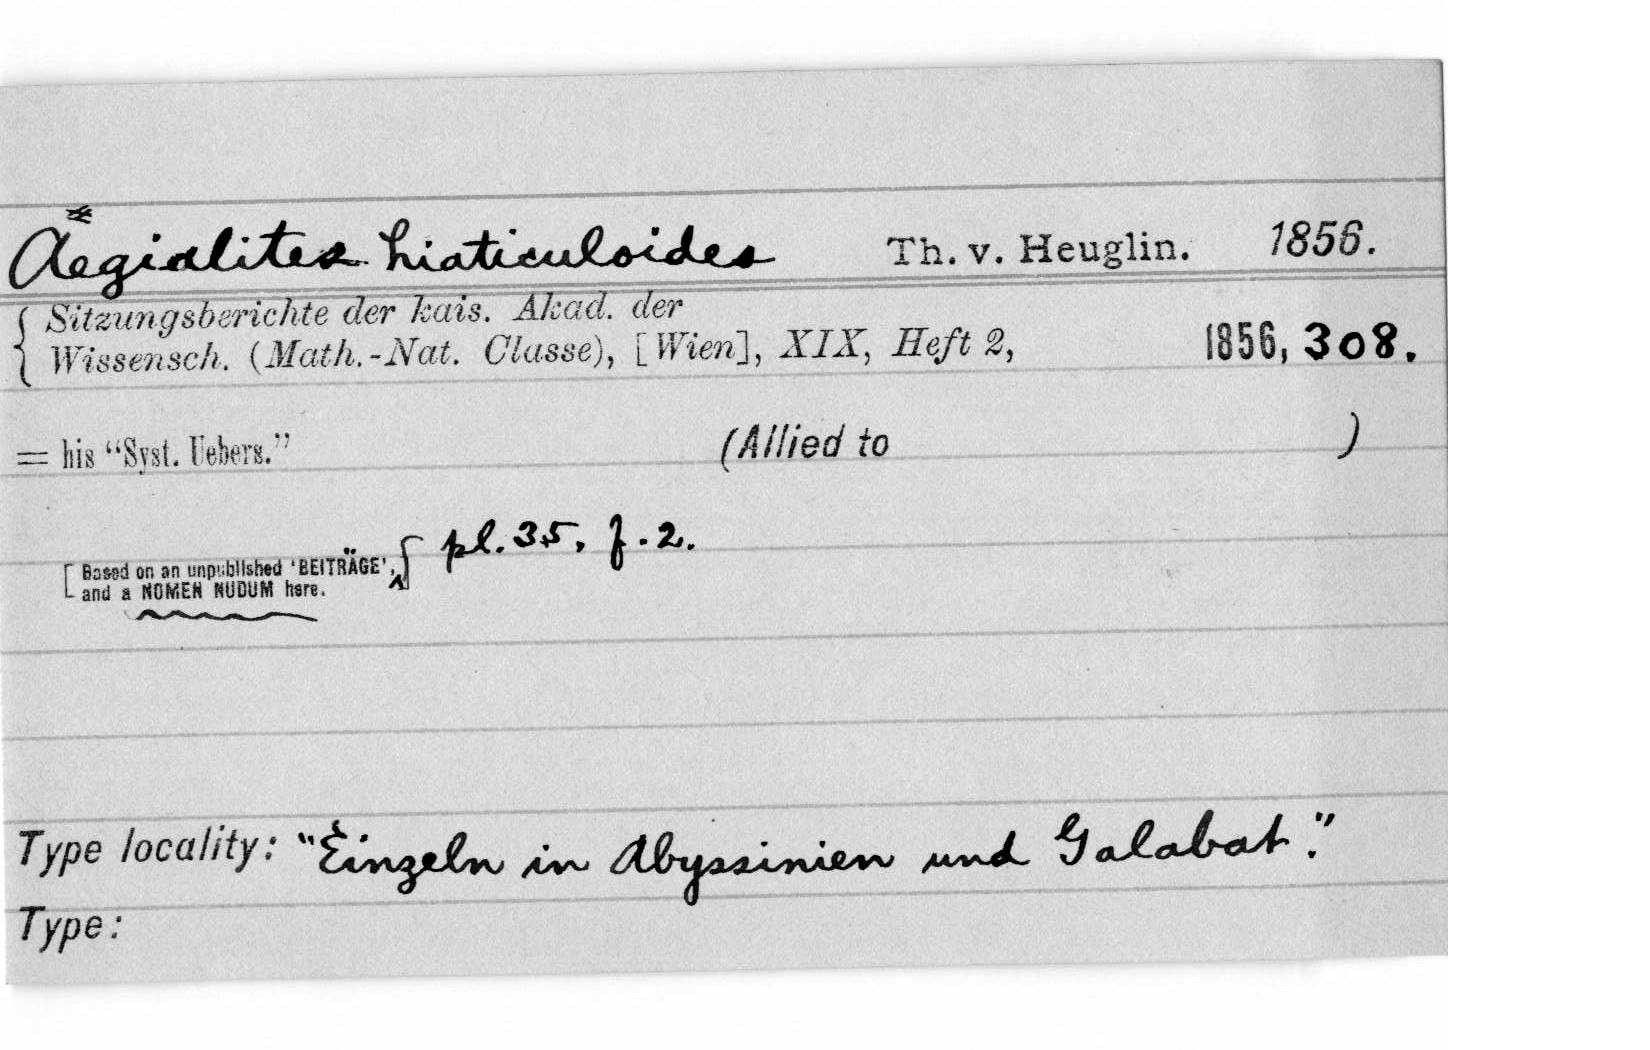 Aegialites hiaticuloides Th. v. Heuglin. 1856.
Sitzungsberichte der kais. Akad. der
Wissensch. (Math.-Nat. Classe), [Wien], XIX, Heft 2, 1856, 308.
= his “Syst. Uebers.” (Allied to )
pl. 35, f. 2.
[Based on an unpublished 'BEITRÄGE',
and a NOMEN NUDUM here.]
Type locality: "Einzeln in Abyssinien und Galabat."
Type: